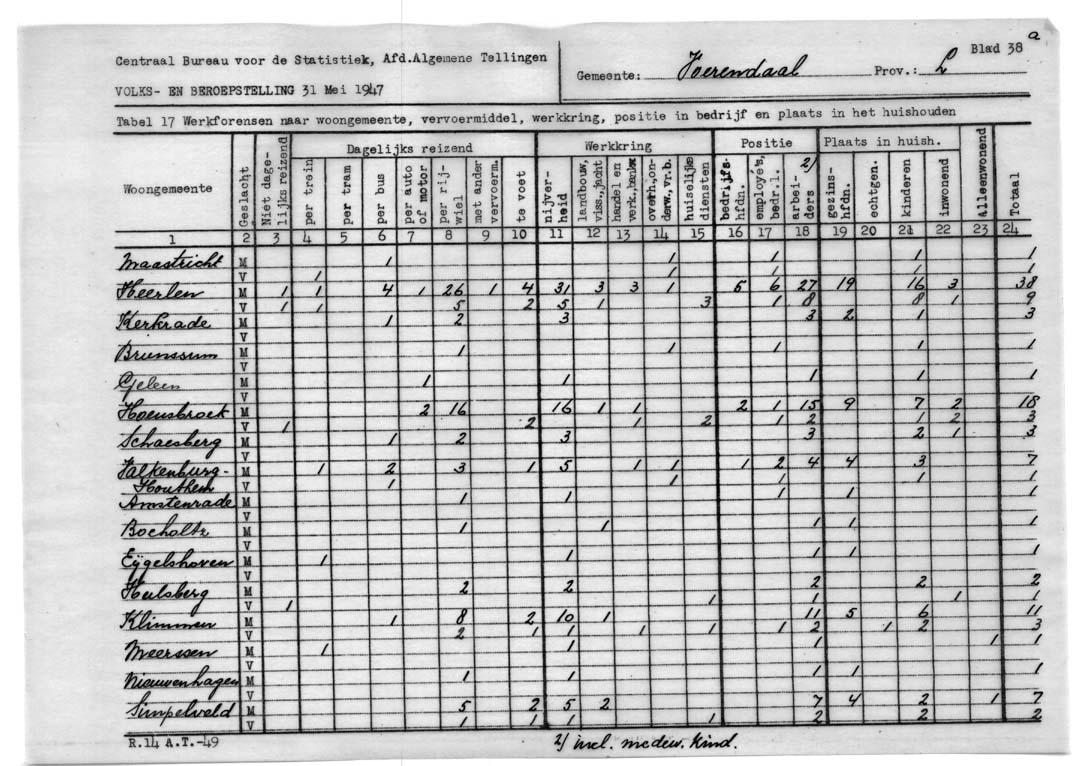 Blad 38 a
Centraal Bureau voor de Statistiek, Afd.Algemene Tellingen
Gemeente: Voerendaal Prov.: L
VOLKS- EN BEROEPSTELLING 31 Mei 1947
Tabel 17 Werkforensen naar woongemeente, vervoermiddel, werkkring, positie in bedrijf en plaats in het huishouden
Woongemeente | Geslacht | Niet dagelijks reizend | Dagelijks reizend | Werkkring | Positie | Plaats in huish. | Alleenwonend | Totaal
per trein | per tram | per bus | per auto of motor | per rijwiel | met ander vervoerm. | te voet | nijverheid | landbouw, viss.,jacht | handel en verk.,bankw | overh.,onderw.,vr.b. | huiselijke diensten | bedrijfshfdn. | employé's, bedr.l. | arbeiders 2/ | gezinshfdn. | echtgen. | kinderen | inwonend
1 2 3 4 5 6 7 8 9 10 11 12 13 14 15 16 17 18 19 20 21 22 23 24
Maastricht M 1 1 1 1 1
V 1 1 1 1 1
Heerlen M 1 1 4 1 26 1 4 31 3 3 1 5 6 27 19 16 3 38
V 1 1 5 2 5 1 3 1 8 8 1 9
Kerkrade M 1 2 3 3 2 1 3
V
Brunssum M 1 1 1 1 1
V
Geleen M 1 1 1 1 1
V
Hoensbroek M 2 16 16 1 1 2 1 15 9 7 2 18
V 1 2 1 2 1 2 1 2 3
Schaesberg M 1 2 3 3 2 1 3
V
Valkenburg- M 1 2 3 1 5 1 1 1 2 4 4 3 7
Houthem V 1 1 1 1 1
Amstenrade M 1 1 1 1 1
V
Bocholtz M 1 1 1 1 1
V
Eijgelshoven M 1 1 1 1 1
V
Hulsberg M 2 2 2 2 2
V 1 1 1 1 1
Klimmen M 1 8 2 10 1 11 5 6 11
V 2 1 1 1 1 1 2 1 2 3
Meerssen M 1 1 1 1 1
V
Nieuwenhagen M 1 1 1 1 1
V
Simpelveld M 5 2 5 2 7 4 2 1 7
V 1 1 1 1 2 2 2
R.14 A.T.-49
2/ incl. medew. kind.